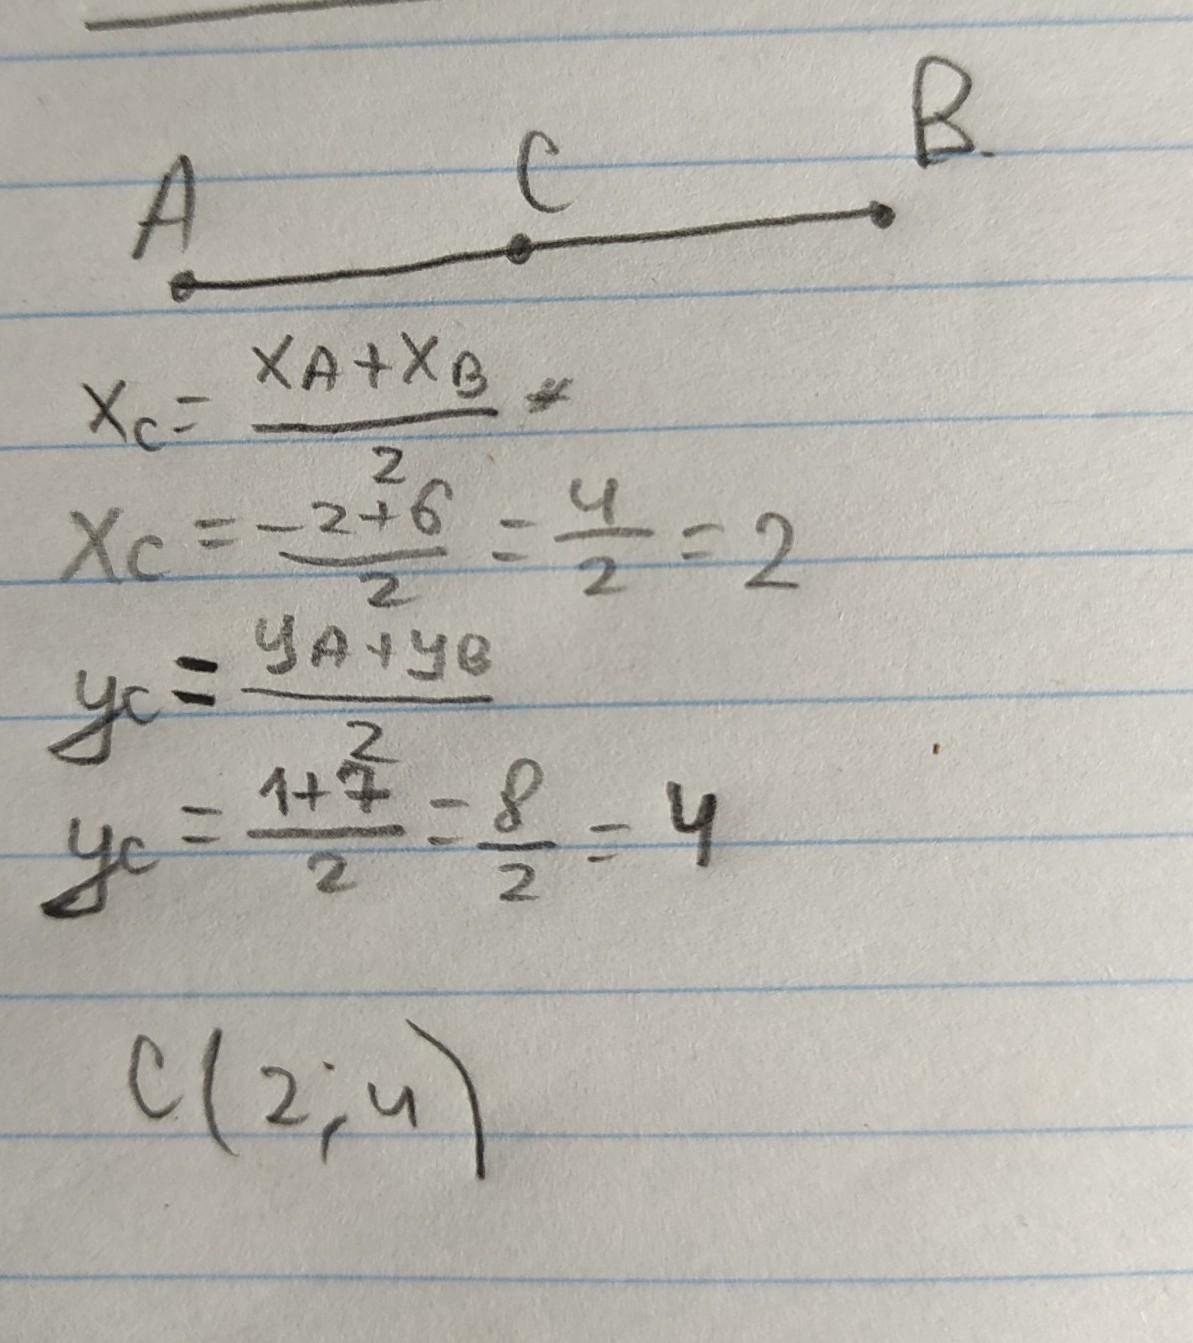 A C B
xC = (xA + xB)/2
xC = (-2+6)/2 = 4/2 = 2
yC = (yA + yB)/2
yC = (1+7)/2 = 8/2 = 4
C(2;4)